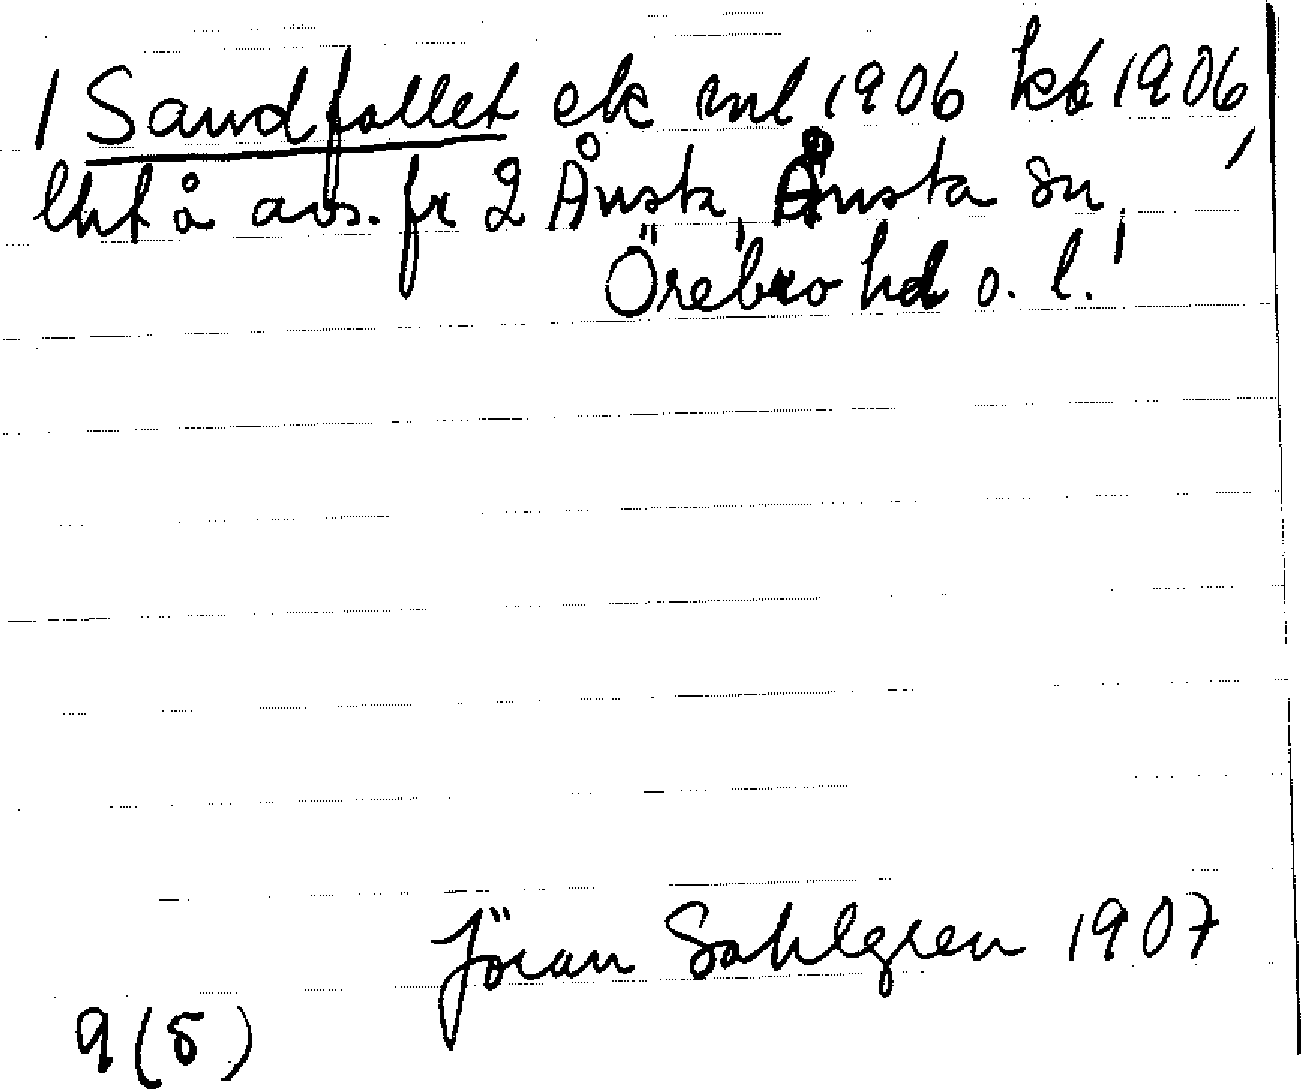 1 Sandfallet ek ml 1906 kb 1906,
lht å avs. fr 2 Ånsta, Ånsta sn,
Örebro hd o. l.
Jöran Sahlgren 1907
9 (5)